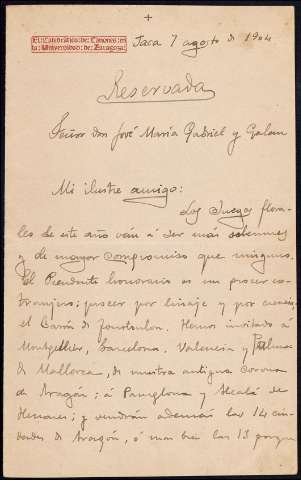 +
El Catedrático de Cánones en
la Universidad de Zaragoza
Jaca 7 agosto de 1904
Reservada
Señor don José María Gabriel y Galán
Mi ilustre amigo:
Los Juegos flora-
les de este año ván á ser más solemnes
y de mayor compromiso que ninguno.
El Presidente honorario es un procer ex-
tranjero; procer por linaje y por ciencia,
el Barón de Tourtoulon. Hemos invitado á
Montpellier, Barcelona, Valencia y Palma
de Mallorca, de nuestra antigua Corona
de Aragón; á Pamplona y Alcalá de
Henares; y vendrán además las 14 ciu-
dades de Aragón, ó mas bien las 13 porque